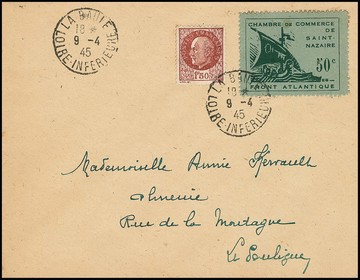 LA BAULE
18 *
9 - 4
45
LOIRE-INFERIEURE
1F50
CHAMBRE DE COMMERCE
DE
SAINT-
NAZAIRE
50c
FRONT ATLANTIQUE
LA BAULE
18 *
9 - 4
45
LOIRE-INFERIEURE
Mademoiselle Annie Herrault
Rue de la Montagne
Le Pouliguen